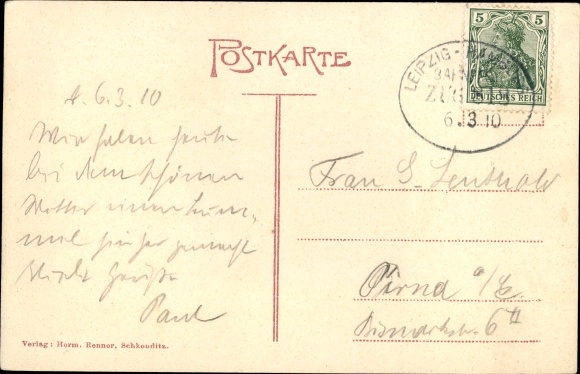 POSTKARTE
5 5
DEUTSCHES REICH
LEIPZIG-
BAHNPOST
ZUG
6.3.10
6.3.10
Wir haben heute
bei dem schönen
Wetter einen Bum-
mel hierher gemacht
Grüße
Paul
Frau
Pirna a/E.
Bismarckstr. 6 II
Verlag: Herm. Renner, Schkeuditz.